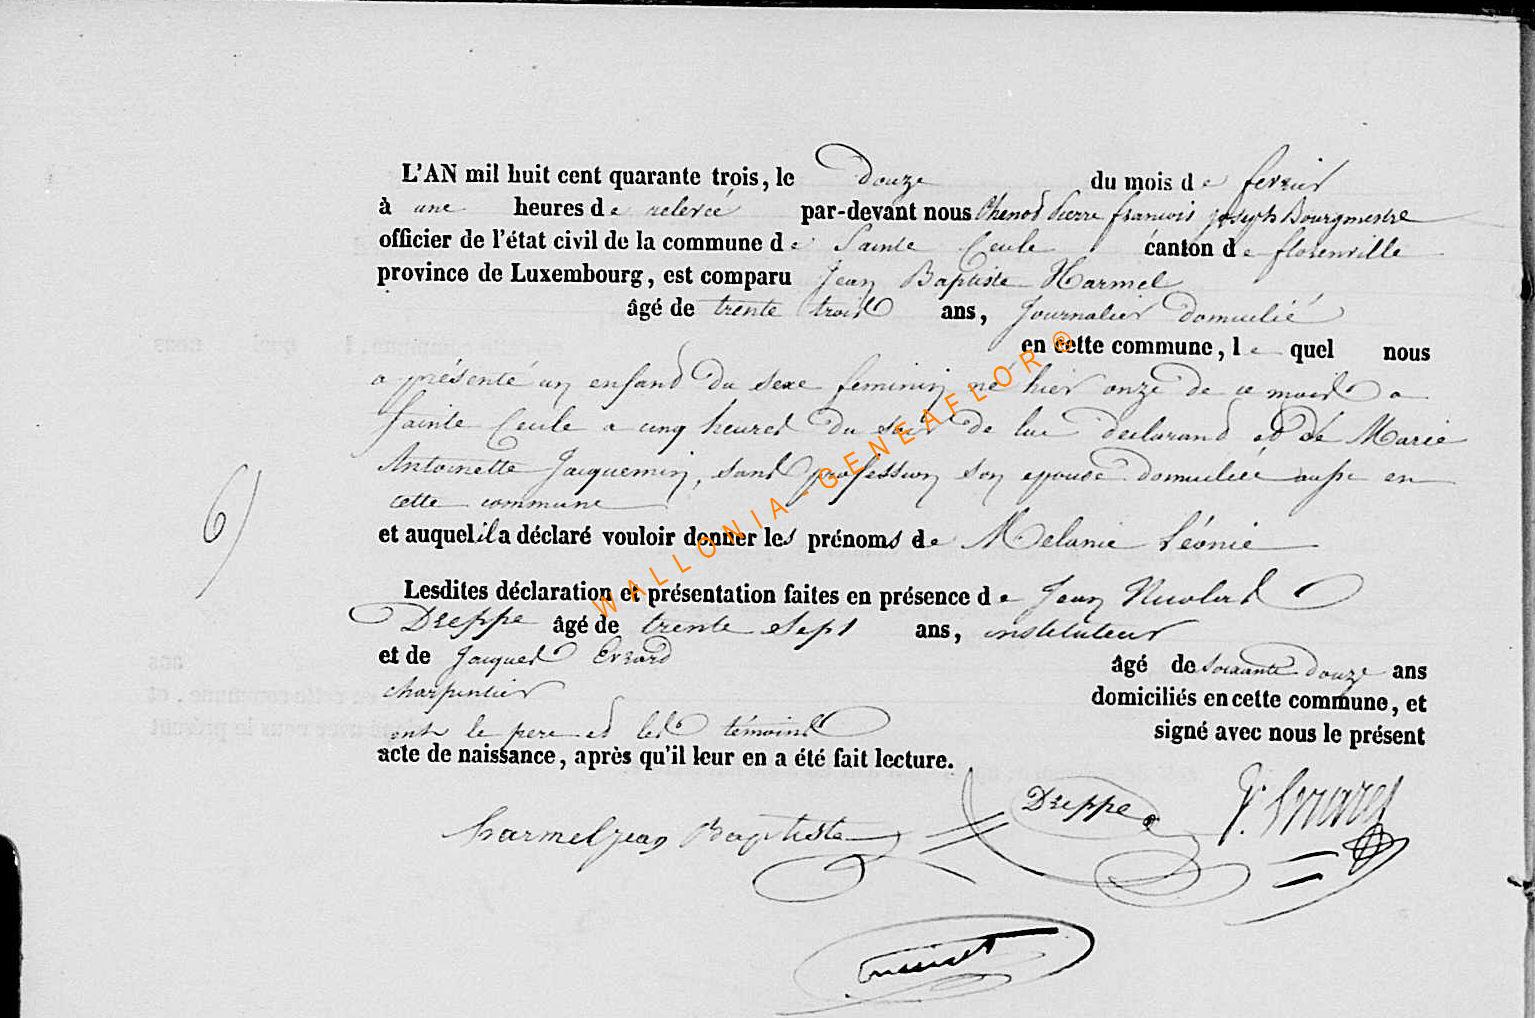 L'AN mil huit cent quarante trois, le douze du mois de fevrier
à une heures de relevée par-devant nous Chenot Pierre françois joseph Bourgmestre
officier de l'état civil de la commune de Sainte Cecile canton de florenville
province de Luxembourg, est comparu Jean Baptiste Harmel
âgé de trente trois ans, Journalier domicilié
en cette commune, le quel nous
a présenté un enfand du sexe feminin né hier onze de ce mois a
sainte Cecile a cinq heures du soir de lui declarand et de Marie
Antoinette Jacquemin, sans profession son epouse domiciliée aussi en
cette commune
6)
et auquel il a déclaré vouloir donner les prénoms de Melanie Léonie
Lesdites déclaration et présentation faites en présence de Jean Nicolas
Dreppe âgé de trente sept ans, instituteur
et de Jacques Evrard âgé de soixante douze ans
charpentier domiciliés en cette commune, et
ont le pere et les témoins signé avec nous le présent
acte de naissance, après qu'il leur en a été fait lecture.
harmel jean Baptiste Dreppe J. Evrard
WALLONIA-GENEAFLOR®